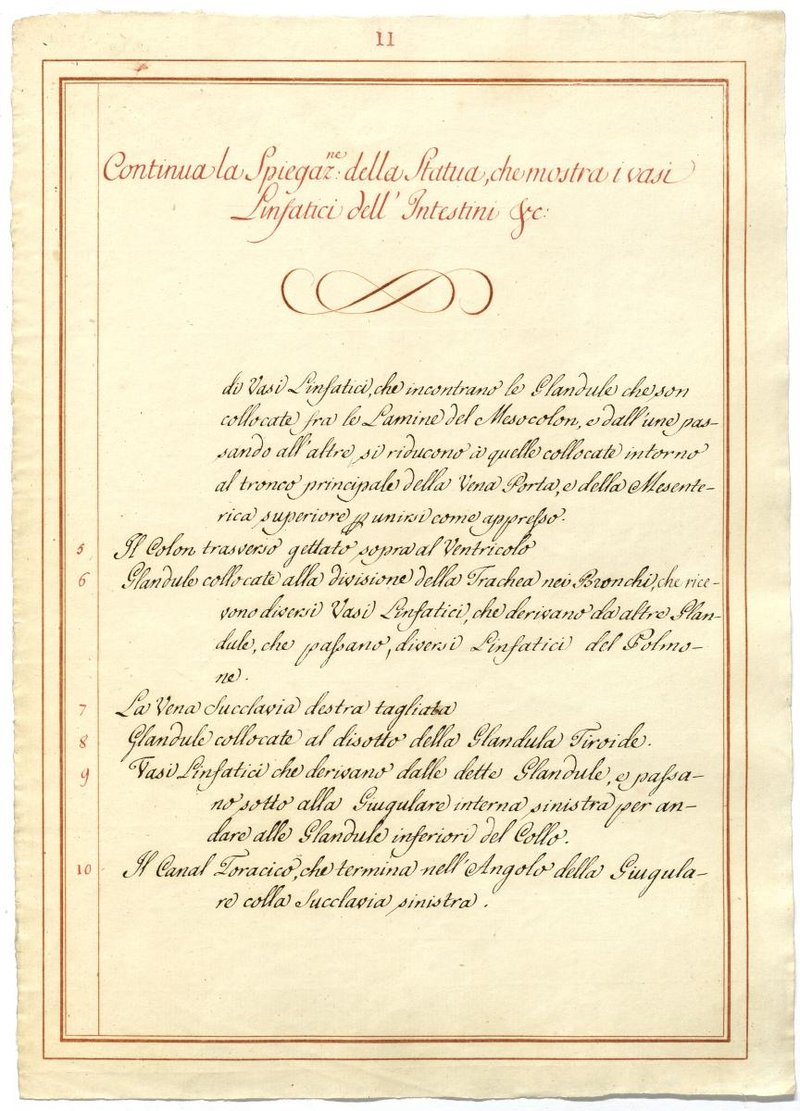 II
Continua la Spiegaz.ne: della Statua, che mostra i vasi
Linfatici dell' Intestini &c:
di Vasi Linfatici, che incontrano le Glandule che son
collocate fra le Lamine del Mesocolon, e dall'une pas-
sando all'altre, si riducono à quelle collocate intorno
al tronco principale della Vena Porta, e della Mesente-
rica superiore ꝑ unirsi come appreſso.
5 Il Colon trasverso gettato sopra al Ventricolo
6 Glandule collocate alla divisione della Trachea nei Bronchi, che rice-
vono diversi Vasi Linfatici, che derivano da altre Glan-
dule, che paſsano, diversi Linfatici del Polmo-
ne.
7 La Vena Succlavia destra tagliata
8 Glandule collocate al disotto della Glandula Tiroide.
9 Vasi Linfatici che derivano dalle dette Glandule, e paſsa-
no sotto alla Giugulare interna sinistra per an-
dare alle Glandule inferiori del Collo.
10 Il Canal Toracico, che termina nell'Angolo della Giugula-
re colla Succlavia sinistra.